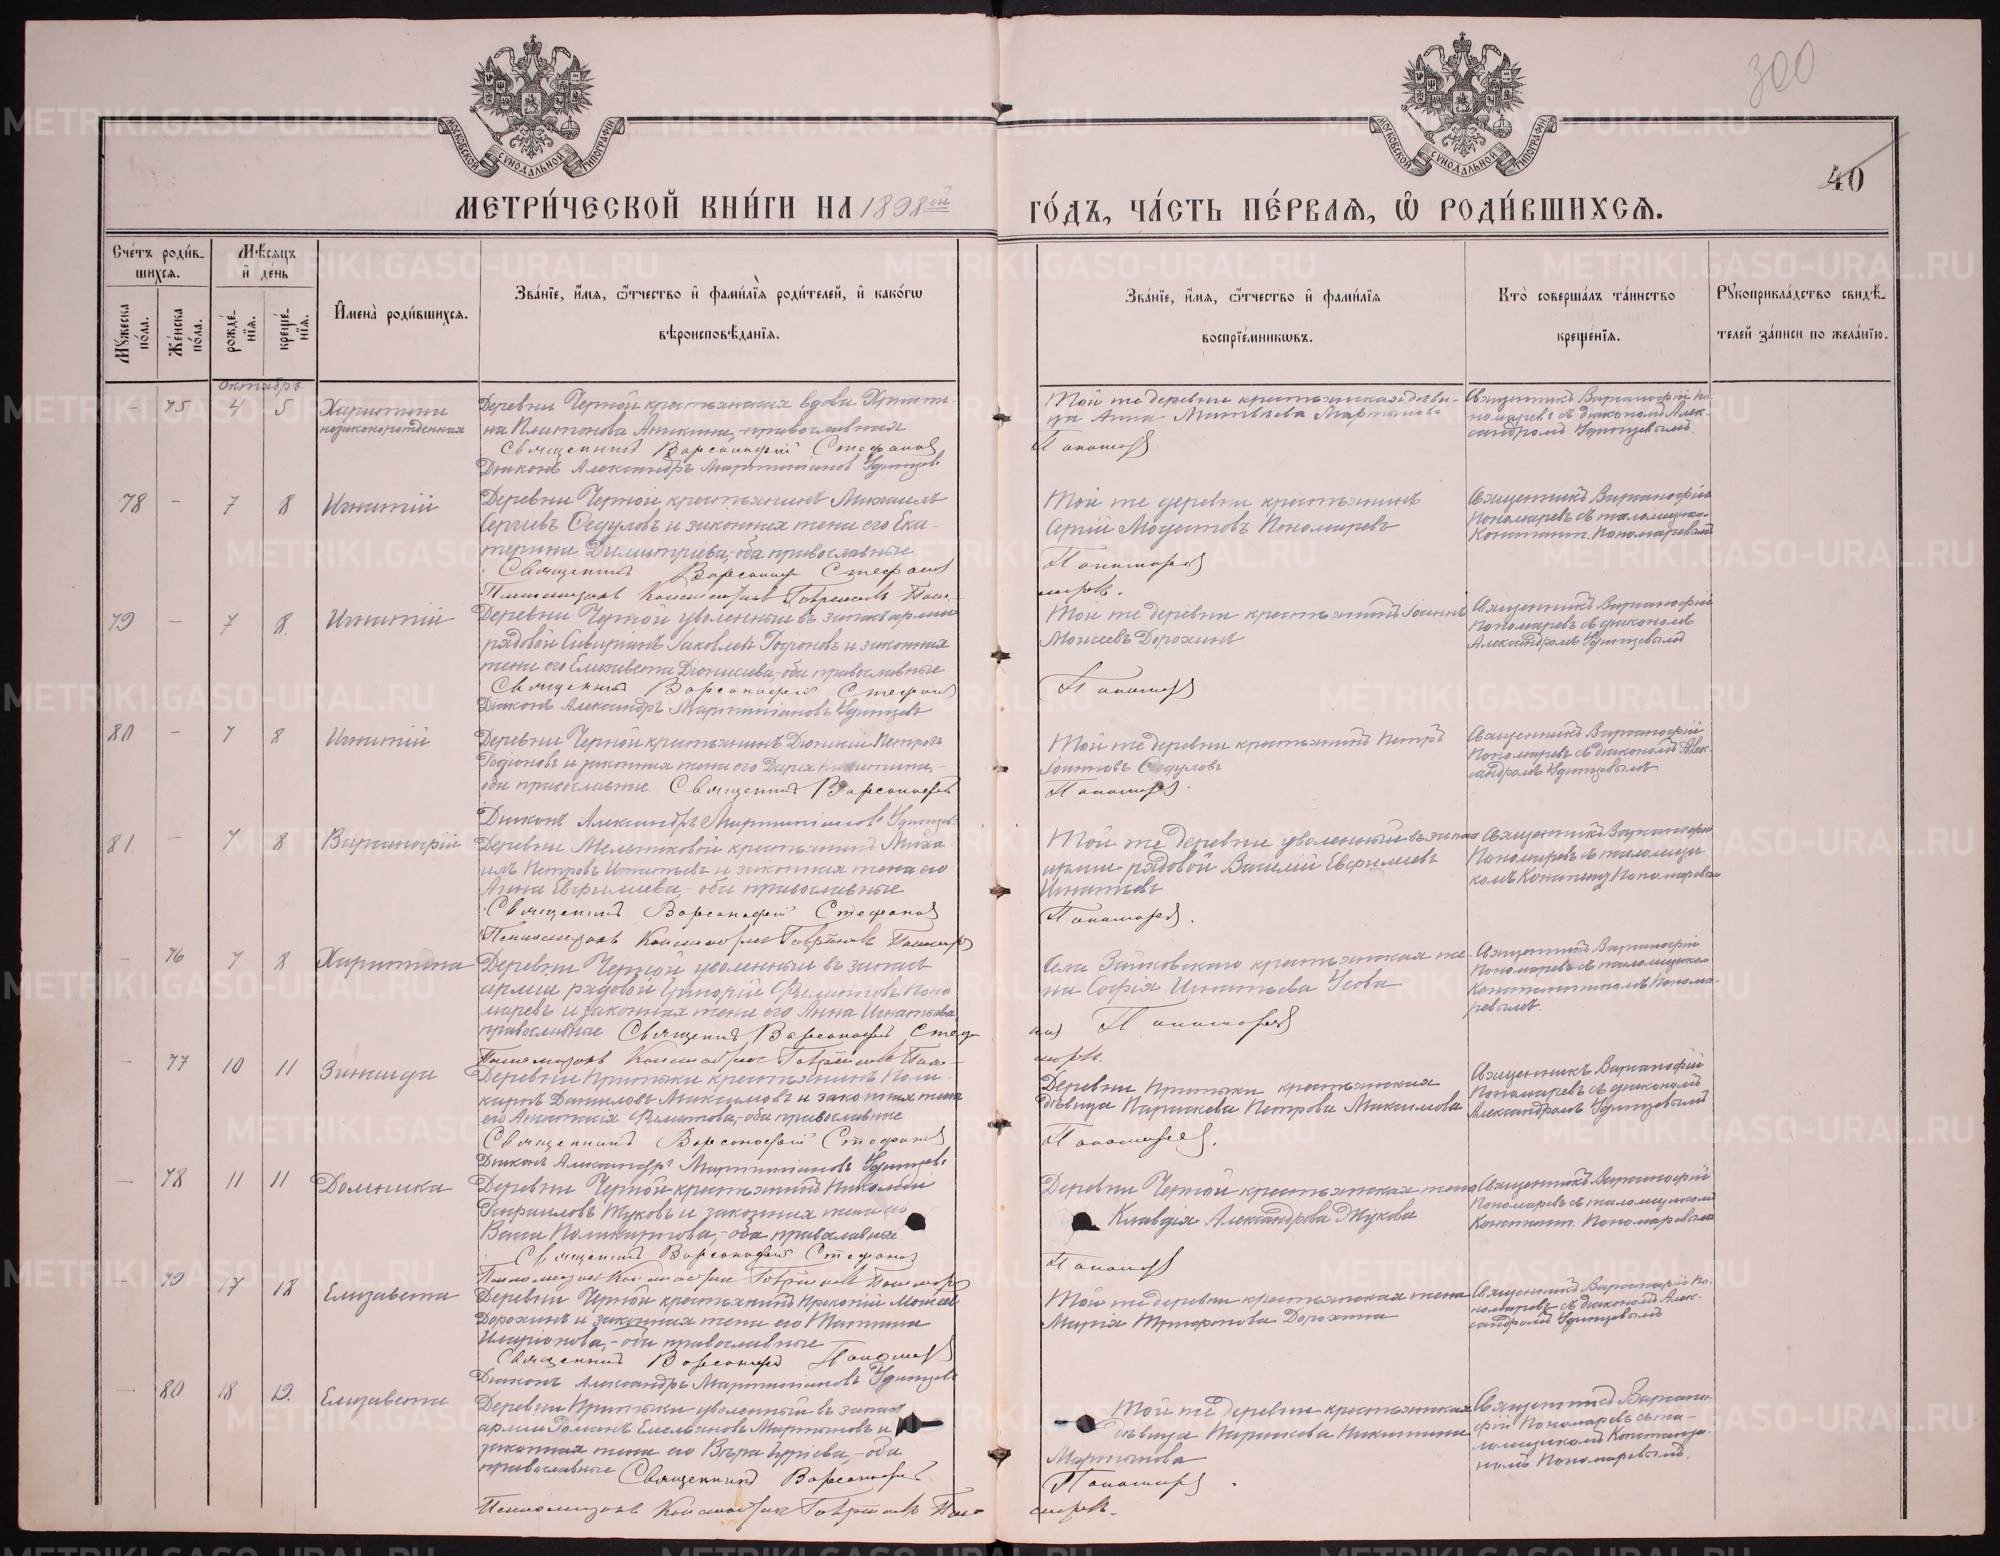 300
40
МОСКОВСКОЙ СѴНОДАЛЬНОЙ ТИПОГРАФІИ
МОСКОВСКОЙ СѴНОДАЛЬНОЙ ТИПОГРАФІИ
МЕТРИ́ЧЕСКОЙ КНИ́ГИ НА 1898ой ГО́ДЪ, ЧА́СТЬ ПЕ́РВАѦ, Ѽ РОДИ́ВШИХСѦ.
Сче́тъ роди́вшихсѧ.
Мѣ́сяцъ и де́нь
Мꙋ́жеска по́ла.
Же́нска по́ла.
рожде́нїѧ.
креще́нїѧ.
Имена̀ роди́вшихсѧ.
Зва́нїе, и́мѧ, ѻ҆́тчество и҆ фами́лїѧ роди́телей, и҆ како́гѡ вѣроисповѣ́данїѧ.
Зва́нїе, и́мѧ, ѻ҆́тчество и҆ фами́лїѧ воспрїе́мникѡвъ.
Кто̀ соверша́лъ та́инство креще́нїѧ.
Рꙋкоприкла́дство свидѣ́телей за́писи по жела́нїю.
Октябрь
- 75 4 5 Харитина незаконорожденная
Деревни Черной крестьянская вдова Христи-
на Платонова Аникина, православная
Священник Варсонофий Стефанов
Діаконъ Александръ Мартиніановъ Удинцевъ
Той же деревни крестьянская дѣви-
ца Анна Матвѣева Мартынова
Пономарев
Священникъ Варсанофій По-
номаревъ съ діакономъ Алек-
сандромъ Удинцевымъ
78 - 7 8 Игнатій
Деревни Черной крестьянинъ Михаилъ
Сергіевъ Федуловъ и законная жена его Ека-
терина Димитріева, оба православные
Священник Варсонофий Стефанов
Псаломщикъ Константинъ Гавриловъ Поно-
Той же деревни крестьянинъ
Сергій Модестовъ Пономаревъ
Пономарев
маревъ.
Священникъ Варсанофій
Пономаревъ съ псаломщико-
Констант. Пономаревымъ
79 - 7 8. Игнатій
Деревни Черной уволенный въ запасъ арміи
рядовой Сивиріанъ Іаковлевъ Родіоновъ и законная
жена его Елизавета Діонисіева, оба православные
Священник Варсонофий Стефанов
Діаконъ Александръ Мартиніановъ Удинцевъ
Той же деревни крестьянинъ Іоаннъ
Моисеевъ Дорохинъ
Пономарев
Священникъ Варсанофій
Пономаревъ съ діакономъ
Александромъ Удинцевымъ
80 - 7 8 Игнатій
Деревни Черной крестьянинъ Діонисій Петровъ
Родіоновъ и законная жена его Дарія Никитина,-
оба православные Священник Варсонофий
Діаконъ Александръ Мартиніановъ Удинцевъ
Той же деревни крестьянинъ Петръ
Іоанновъ Федуловъ
Пономарев.
Священникъ Варсанофій
Пономаревъ съ діакономъ Алек-
сандромъ Удинцевымъ
81. - 7 8 Варсанофій
Деревни Мельниковой крестьянинъ Миха-
илъ Петровъ Игнатьевъ и законная жена его
Анна Евфиміева,- оба православные
Священник Варсонофий Стефанов
Псаломщикъ Константинъ Гавриловъ Пономар
Той же деревни уволенный въ запас
арміи рядовой Василій Евфиміевъ
Игнатьевъ
Пономарев.
Священникъ Варсанофій
Пономаревъ съ псаломщи-
комъ Констант Пономаревым
- 76 7 8 Харитина
Деревни Черной уволенный въ запасъ
арміи рядовой Григорій Филиповъ Поно
маревъ и законная жена его Анна Игнатьева
православные Священник Варсонофий Стефа-
Псаломщикъ Константинъ Гавриловъ Поно-
Села Зайковскаго крестьянская же-
на Софія Игнатьева Усова
нов Пономарев
маревъ.
Священникъ Варсанофій
Пономаревъ съ псаломщикомъ
Константиномъ Понома-
ревымъ.
- 77 10 11 Зинаида
Деревни Притыки крестьянинъ Поли-
карпъ Даниловъ Максимовъ и законная жена
его Анастасія Филипова,-оба православные
Священник Варсонофий Стефанов
Діаконъ Александръ Мартиніановъ Удинцевъ
Деревни Притыки крестьянская
дѣвица Параскева Петрова Максимова
Пономарев.
Священникъ Варсанофій
Пономаревъ съ діакономъ
Александромъ Удинцевымъ
- 78 11 11 Домника
Деревни Черной крестьянинъ Николай
Гавриловъ Жуковъ и законная жена его
Васса Поликарпова,- оба православные
Священник Варсонофий Стефанов
Псаломщикъ Константинъ Гавриловъ Пономар
Деревни Черной крестьянская жена
Клавдія Александрова Жукова
Пономарев
Священникъ Варсанофій
Пономаревъ съ псаломщикомъ
Констант. Пономаревымъ
- 79 17 18 Елизавета
Деревни Черной крестьянинъ Прокопій Моисеев
Дорохинъ и законная жена его Татіана
Иларіонова,- оба православные
Священник Варсонофий Пономарев
Діаконъ Александръ Мартиніановъ Удинцевъ
Той же деревни крестьянская жена
Марія Трифонова Дорохина
Священникъ Варсанофій По-
номаревъ съ діакономъ Алек-
сандромъ Удинцевымъ
- 80 18 19. Елизавета
Деревни Притыки уволенный въ запас
арміи Романъ Емельяновъ Мартыновъ и
законная жена его Вѣра Гуріева,- оба
православные Священник Варсонофий
Псаломщикъ Константинъ Гавриловъ Поно-
Той же деревни крестьянская
дѣвица Параскева Никитина
Мартынова
Пономарев.
маревъ.
Священникъ Варсано-
фій Пономаревъ съ пса-
ломщикомъ Константи-
номъ Пономаревымъ.
METRIKI.GASO-URAL.RU